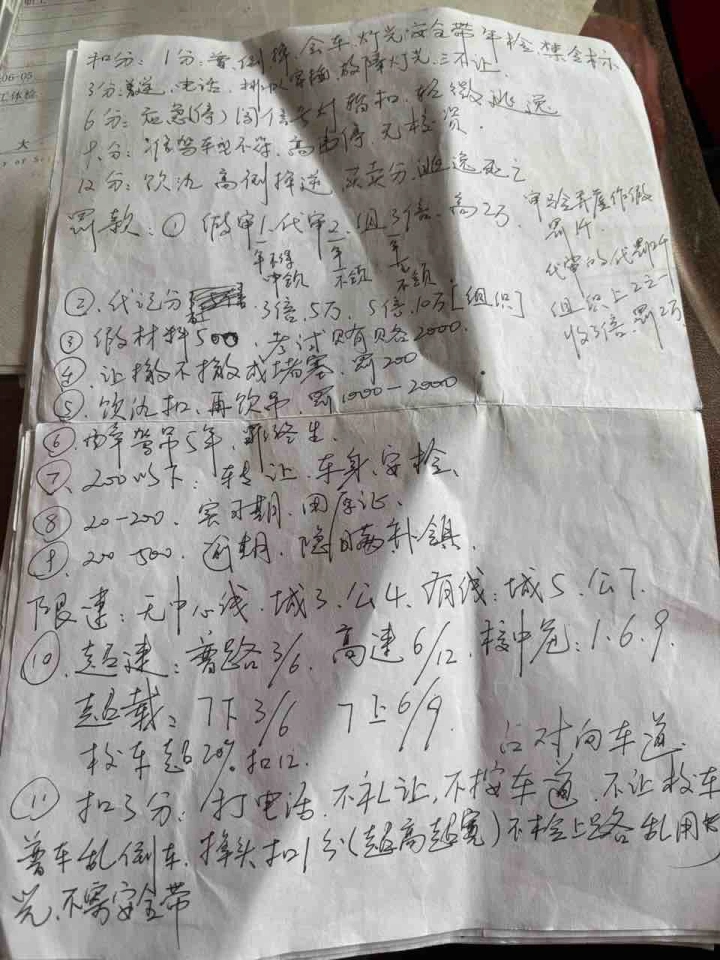 06-05
工体检
大
扣分: 1分: 普倒掉、会车、灯光安全带年检、禁令标
3分: 逆、电话、排队穿插、故障灯光、三不让
6分: 应急(停)闯信 暂扣、轻微逃逸
九分: 准驾车型不符、高 停、无校资.
12分: 饮酒 高倒掉逆 买卖分、逃逸死亡
罚款: ① 假审1、代审2、组3倍、高2万
年 年 年
不得 不领 不领
申领
审验弄虚作假
罚1千
代审的代罚2千
组织上2之一
收3倍.罚2万
②. 代记分 3倍、5万、5倍、10万[组织]
③ 假材料500、考试贿 2000.
④. 让撤不撤成堵塞、罚200
⑤. 饮酒扣、再饮吊、罚1000-2000
⑥. 醉驾吊5年、罪终生.
⑦、200以下: 转让、车身、安检、
⑧ 20-200、实习期、用原证、
⑨. 200-500、逾期、隐瞒补领.
限速: 无中心线、城3、公4、有线: 城5、公7.
⑩. 超速: 普路3/6、高速6/12、校中危: 1.6.9.
超载: 7下3/6 7上6/9.
校车超20%扣12. 占对向车道.
⑪ 扣3分: 打电话、不礼让、不按车道、不让校车
普车乱倒车、掉头扣1分(超高超宽)不检上路乱用灯
光、不系安全带